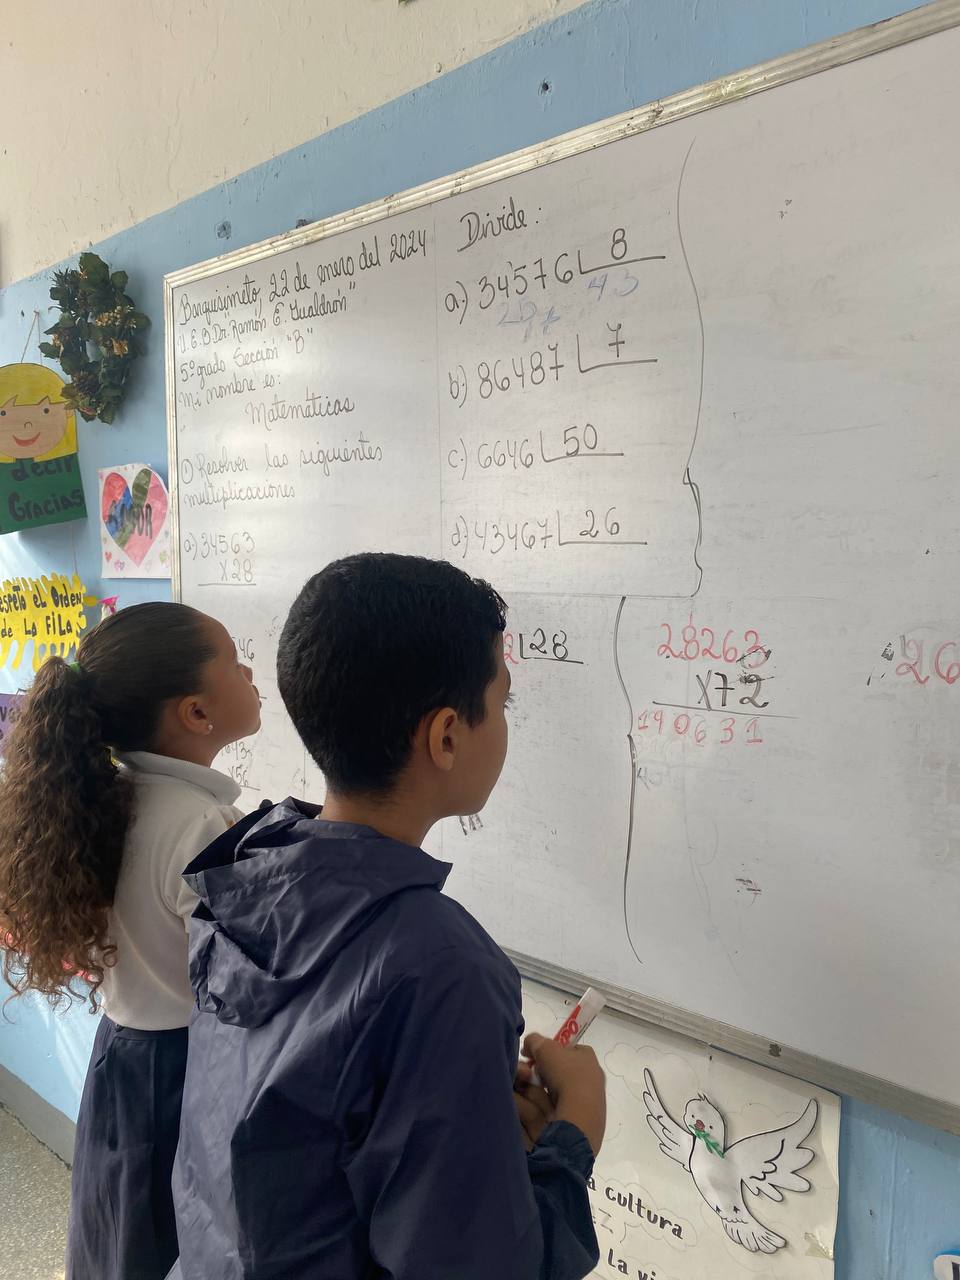 Barquisimeto, 22 de enero del 2024
U.E.B.Dr. "Ramón E. Gualdrón"
5º grado Sección "B"
Mi nombre es:
Matemáticas
① Resolver las siguientes
multiplicaciones
a) 34563
X28
X56
Divide:
a) 34576 8
43
b) 86487 7
c) 6646 50
d) 43467 26
2 28
28263
X72
190631
26
decir
Gracias
AMOR
espeto el Orden
de La FiLa
a cultura
La vi